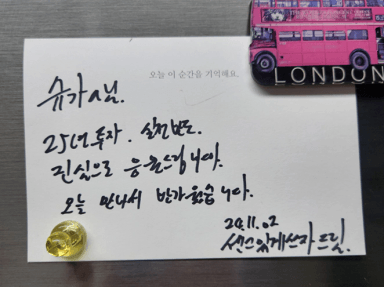 오늘 이 순간을 기억해요.
LONDON
슈가님.
25년 투자. 실천 반드.
진심으로 응원드립니다.
오늘 만나서 반가웠습니다.
20.11.02
드림.